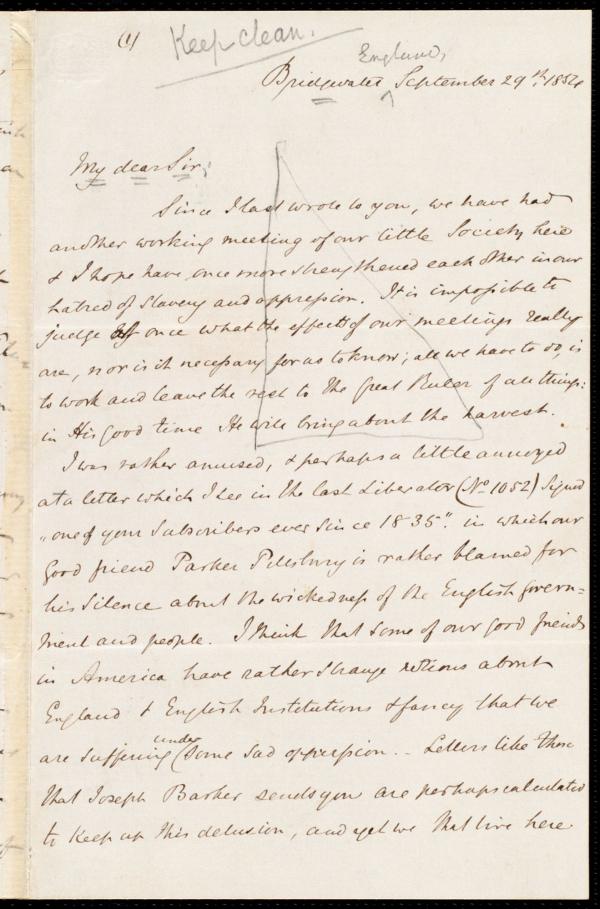 (1) Keep clean.
England,
Bridgwater ^ September 29th, 1854
My dear Sir;
Since I last wrote to you, we have had
another working meeting of our little Society here
& I hope have once more strengthened each other in our
hatred of Slavery and oppression. It is impossible to
judge at once what the effects of our meetings really
are, nor is it necessary for us to know; all we have to do, is
to work and leave the rest to the Great Ruler of all things:
in His good time He will bring about the harvest.
I was rather amused, & perhaps a little annoyed
at a letter which I see in the last Liberator (No 1052) signed
"one of your Subscribers ever since 1835." in which our
good friend Parker Pillsbury is rather blamed for
his silence about the wickedness of the English govern=
ment and people. I think that some of our good friends
in America have rather strange notions about
England & English Institutions & fancy that we
under
are suffering (some sad oppression. - Letters like those
that Joseph Barker sends you are perhaps calculated
to keep up this delusion, and yet we that live here